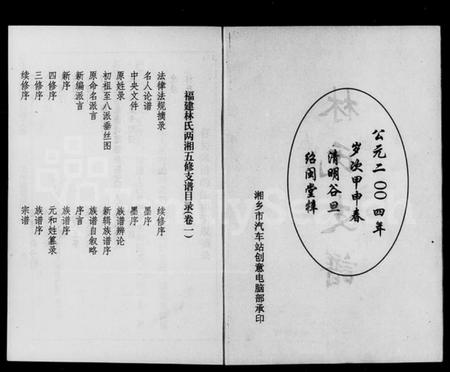 公元二〇〇四年
岁次甲申春
清明谷旦
绍闽堂梓
湘乡市汽车站创意电脑部承印
福建林氏两湘五修支谱目录(卷一)
法律法规摘录
名人论谱
中央文件
原姓录
初祖至八派垂丝图
原命名派言
新编派言
新序
四修序
三修序
续修序
续修序
墨序
墨序
族谱辨论
新辑族谱序
族谱自叙略
序言
族谱序
元和姓纂录
族谱序
宗谱